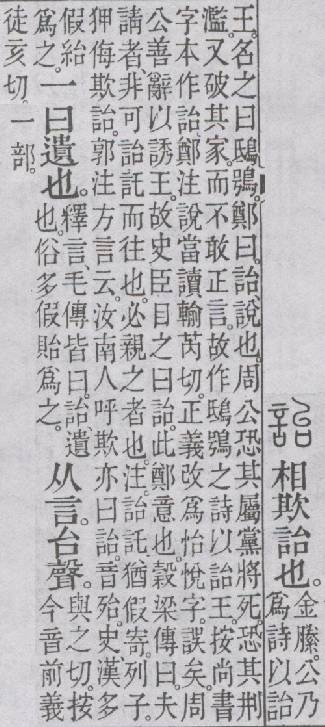 相欺詒也。金縢。公乃爲詩以詒
王。名之曰鴟鴞。鄭曰。詒、說也。周公恐其屬黨將死。恐其刑
濫。又破其家。而不敢正言。故作鴟鴞之詩以詒王。按尚書
字本作詒。鄭注說當讀輸芮切。正義改爲怡悅字。誤矣。周
公善辭以誘王。故史臣目之曰詒。此鄭意也。穀梁傳曰。夫
請者非可詒託而往也。必親之者也。注。詒託猶假寄。列子
狎侮欺詒。郭注方言云。汝南人呼欺亦曰詒。音殆。史漢多
假紿爲之。一曰遺也。釋言、毛傳皆曰。詒、遺也。俗多假貽爲之。从言台聲。與之切。按今音前義
徒亥切。一部。